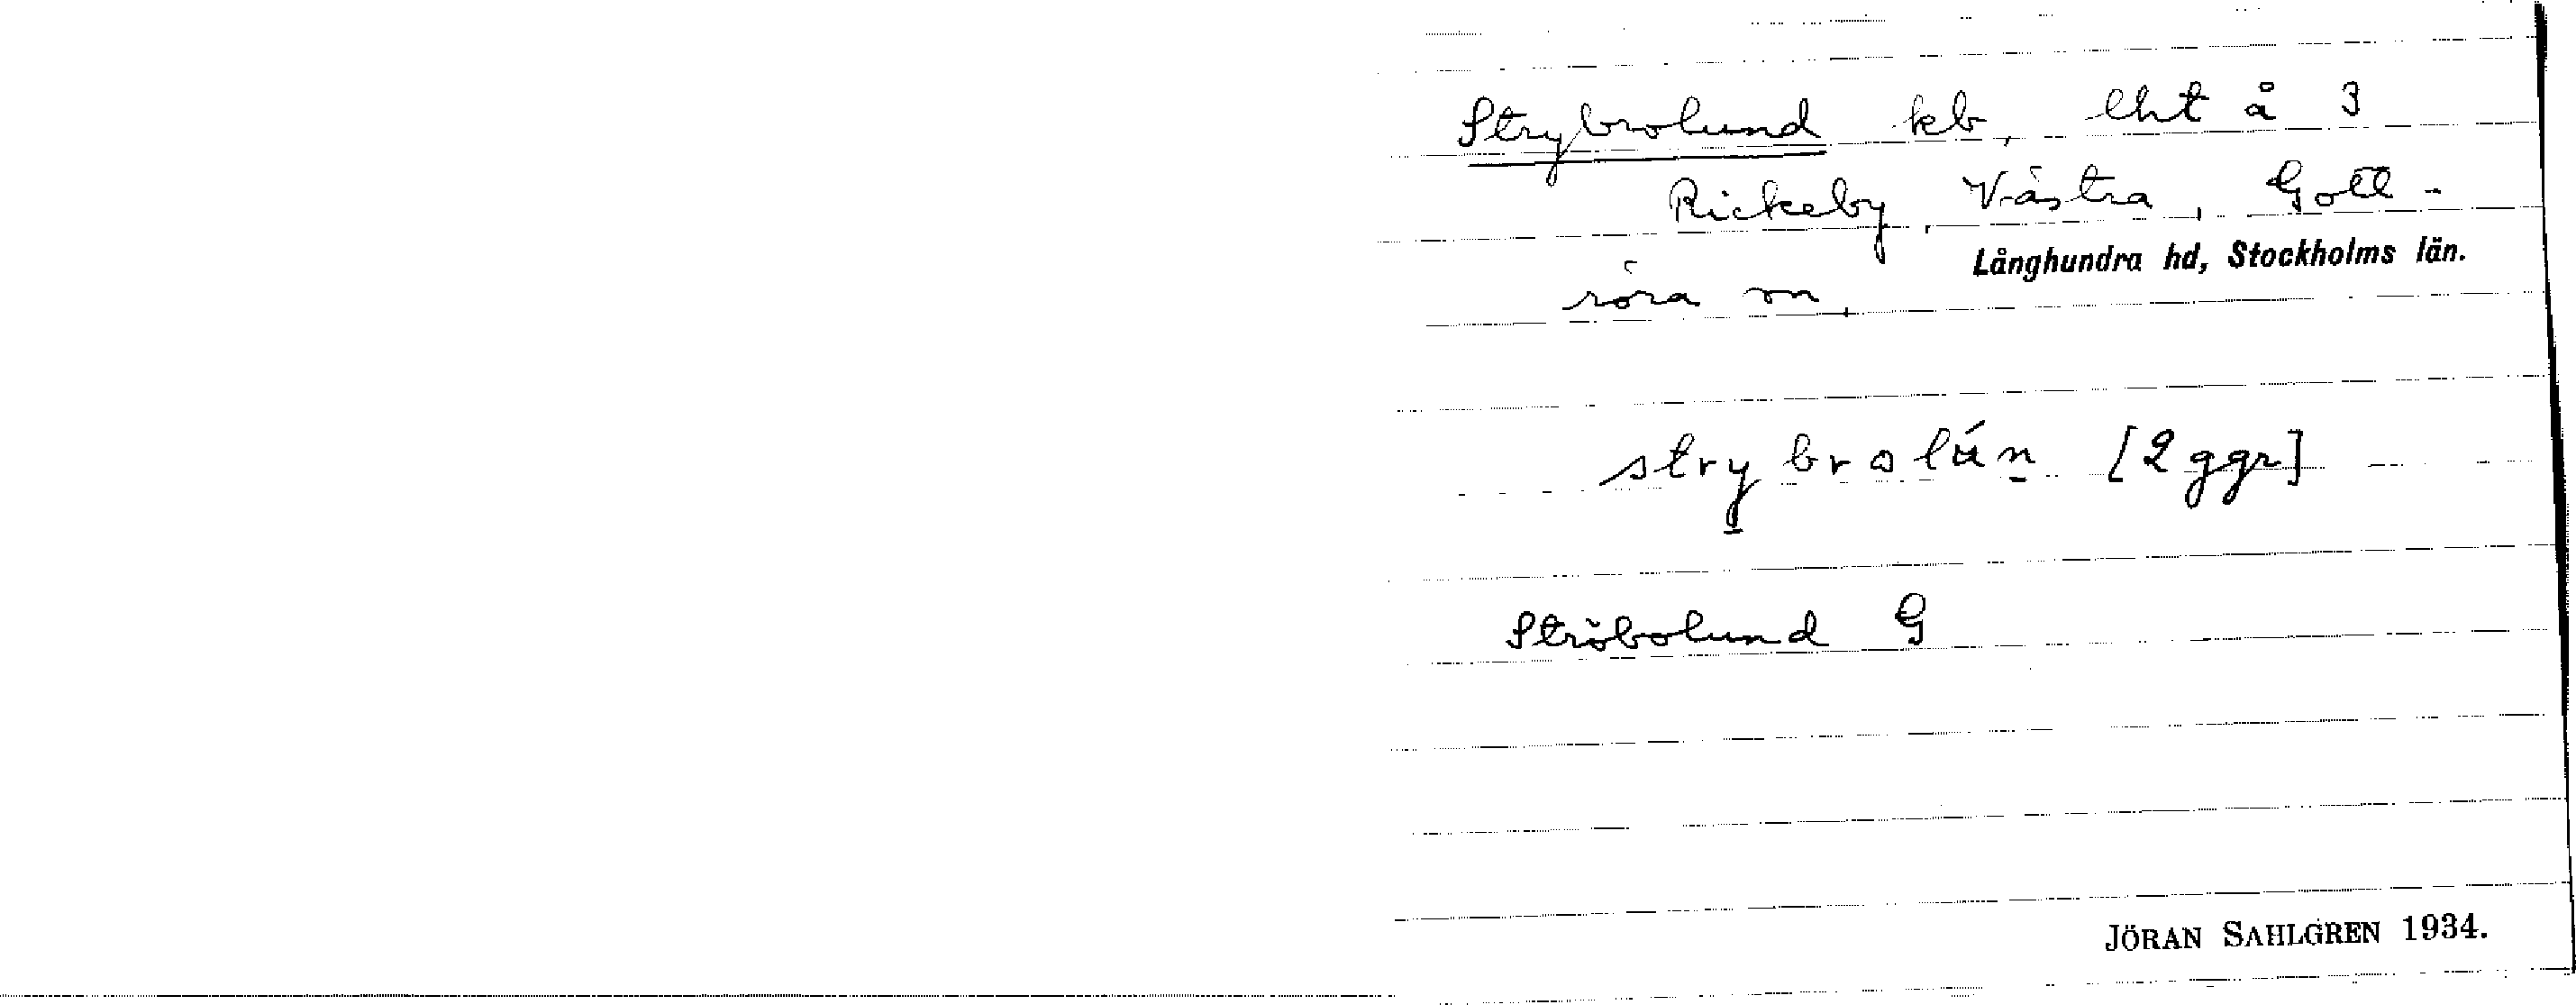 Strybrolund kb, lht å 3
Rickeby, Västra, Gott-
Långhundra hd, Stockholms län.
röra sn.
strybrolún [2 ggr]
Ströbolund G
JÖRAN SAHLGREN 1934.